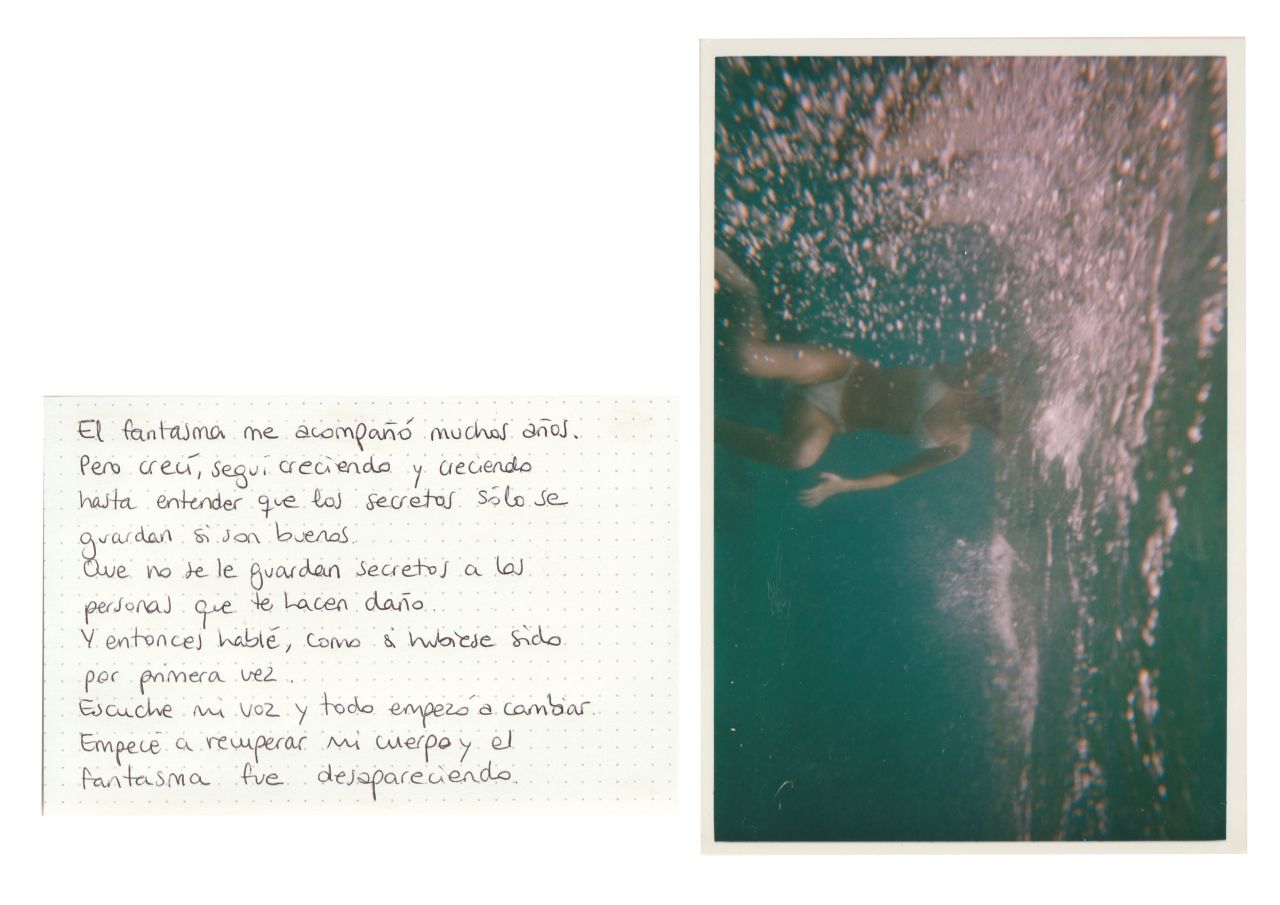 El fantasma me acompañó muchos años.
Pero crecí, seguí creciendo y creciendo
hasta entender que los secretos sólo se
guardan si son buenos.
Que no se le guardan secretos a las
personas que te hacen daño.
Y entonces hablé, como si hubiese sido
por primera vez.
Escuche mi voz y todo empezó a cambiar.
Empecé a recuperar mi cuerpo y el
fantasma fue desapareciendo.